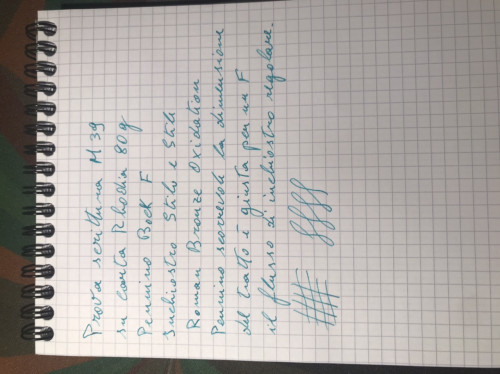 Prova scrittura M39
su carta Rhodia 80g
Pennino Bock F
Inchiostro Stilo e Stile
Roman Bronze Oxidation
Pennino scorrevole la dimensione
del tratto è giusta per un F
il flusso di inchiostro regolare.